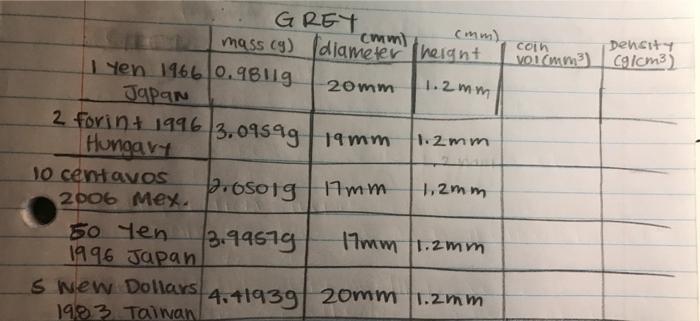 GREY
mass (g) (mm) diameter (mm) height coin vol (mm³) Density (g/cm³)
1 Yen 1966 0.9811g 20mm 1.2mm
Japan
2 forint 1996 3.0959g 19mm 1.2mm
Hungary
10 centavos 2.0501g 17mm 1.2mm
2006 Mex.
50 Yen 3.9957g 17mm 1.2mm
1996 Japan
5 New Dollars 4.4193g 20mm 1.2mm
1983 Taiwan